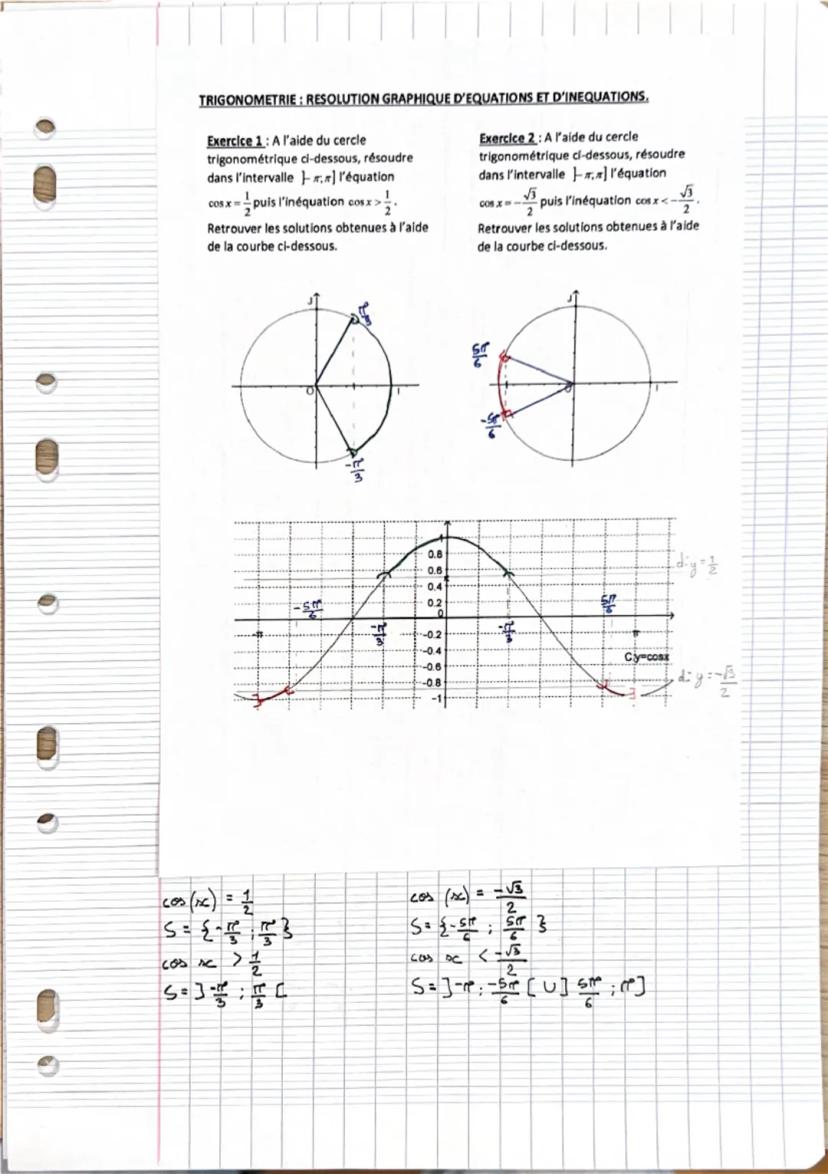 TRIGONOMETRIE : RESOLUTION GRAPHIQUE D'EQUATIONS ET D'INEQUATIONS.
Exercice 1 : A l'aide du cercle
trigonométrique ci-dessous, résoudre
dans l'intervalle ]-π;π] l'équation
cos x = 1/2 puis l'inéquation cos x > 1/2.
Retrouver les solutions obtenues à l'aide
de la courbe ci-dessous.
Exercice 2 : A l'aide du cercle
trigonométrique ci-dessous, résoudre
dans l'intervalle ]-π;π] l'équation
cos x = -√3/2 puis l'inéquation cos x < -√3/2.
Retrouver les solutions obtenues à l'aide
de la courbe ci-dessous.
J
π/3
O
I
-π/3
J
5π/6
O
I
-5π/6
1
0.8
0.6
0.4
0.2
0
-0.2
-0.4
-0.6
-0.8
-1
d: y = 1/2
-5π/6
5π/6
-π
-π/3
-π/3
π
Cy=cosx
d: y = -√3/2
cos (x) = 1/2
S = {-π/3 ; π/3}
cos x > 1/2
S = ]-π/3 ; π/3 [
cos (x) = -√3/2
S = {-5π/6 ; 5π/6}
cos x < -√3/2
S = ]-π ; -5π/6 [ U ] 5π/6 ; π]